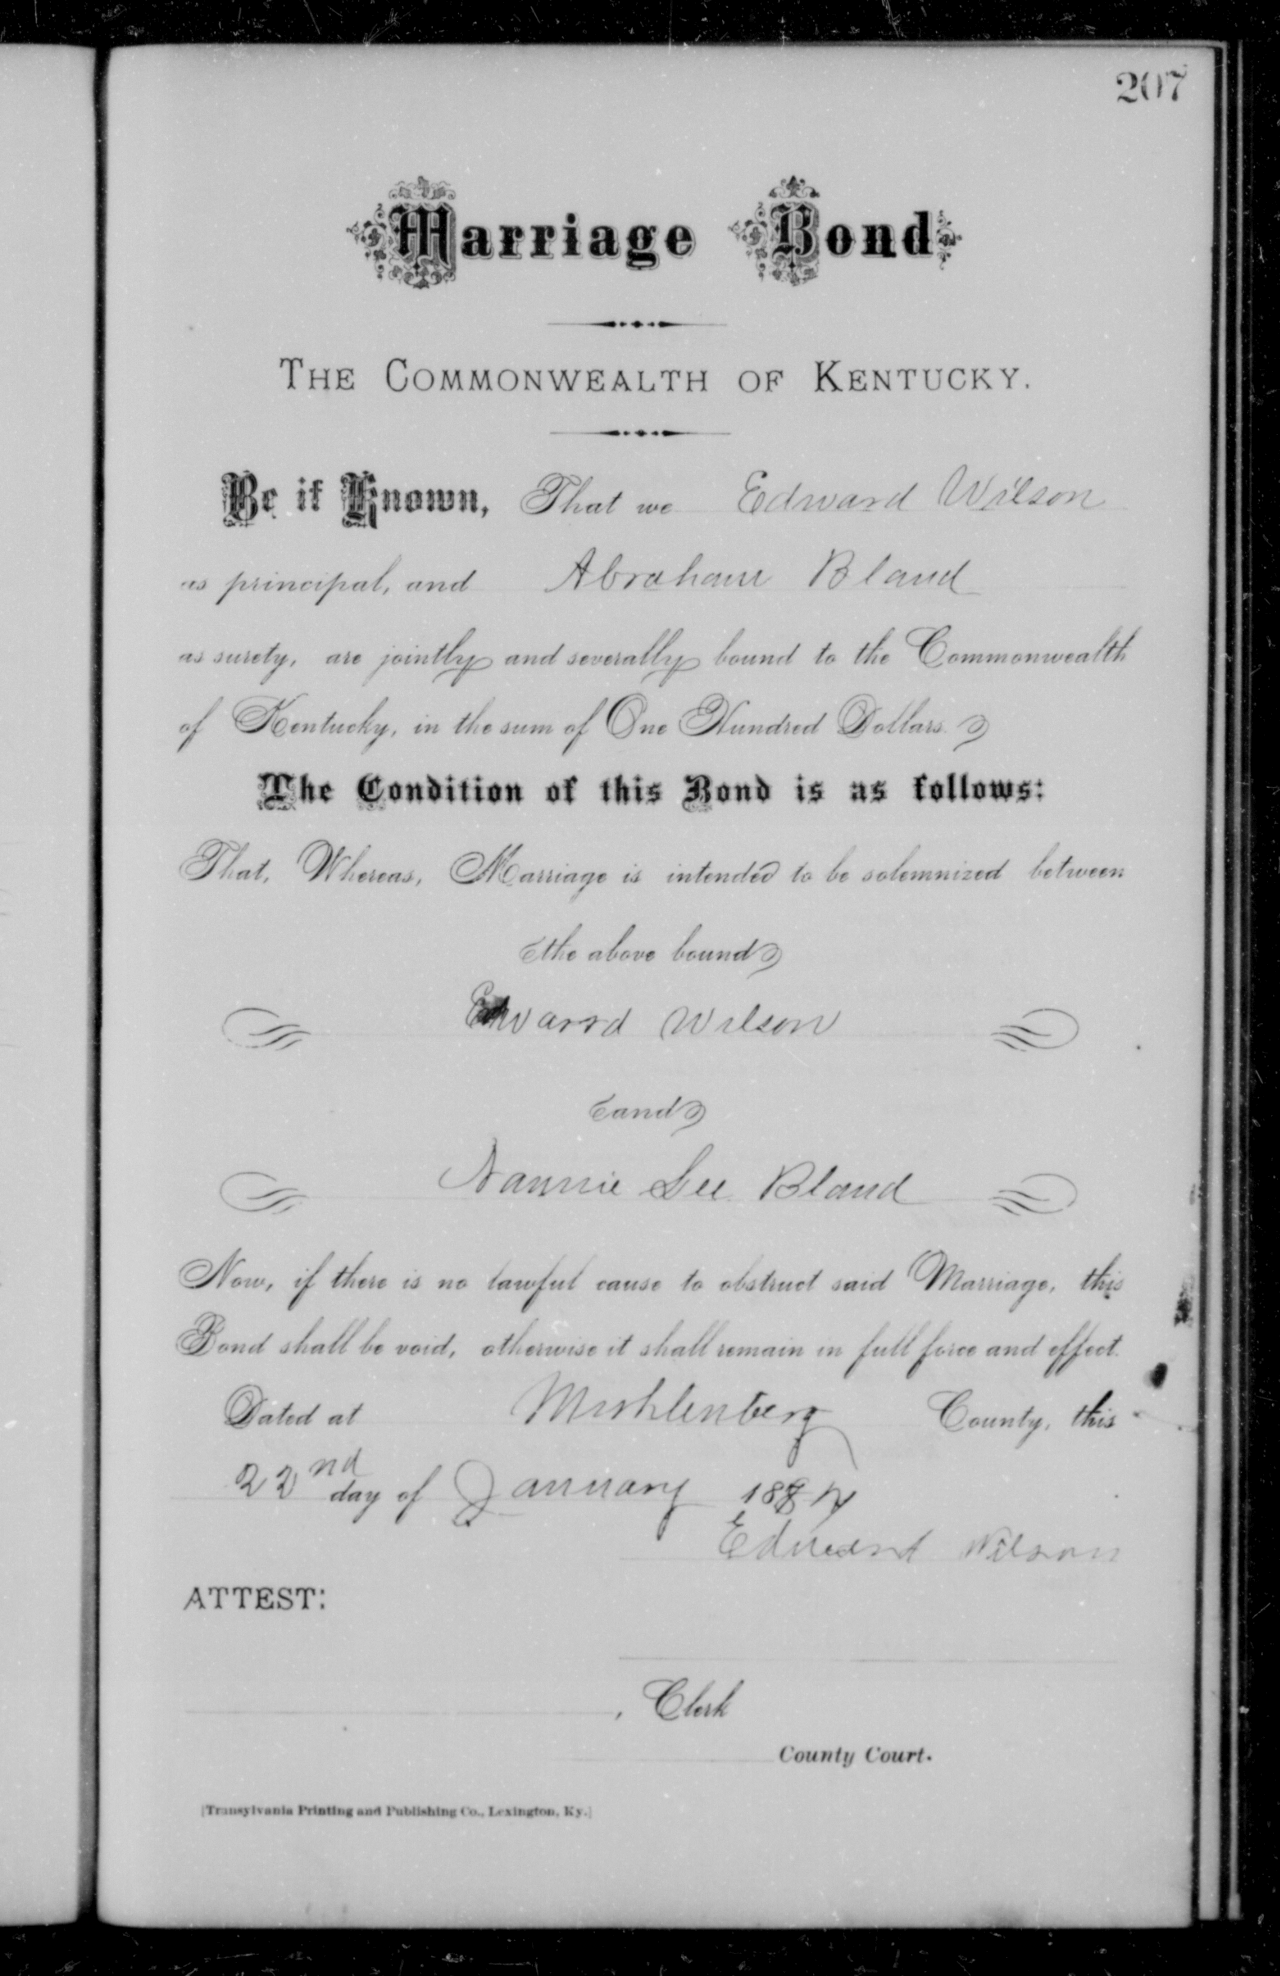 207
Marriage Bond
THE COMMONWEALTH OF KENTUCKY.
Be it Known, That we Edward Wilson
as principal, and Abraham Bland
as surety, are jointly and severally bound to the Commonwealth
of Kentucky, in the sum of One Hundred Dollars.
The Condition of this Bond is as follows:
That, Whereas, Marriage is intended to be solemnized between
the above bound
Edward Wilson
and
Nannie Lee Bland
Now, if there is no lawful cause to obstruct said Marriage, this
Bond shall be void, otherwise it shall remain in full force and effect.
Dated at Muhlenberg County, this
22nd day of January 188
Edward Wilson
ATTEST:
, Clerk
County Court.
[Transylvania Printing and Publishing Co., Lexington, Ky.]